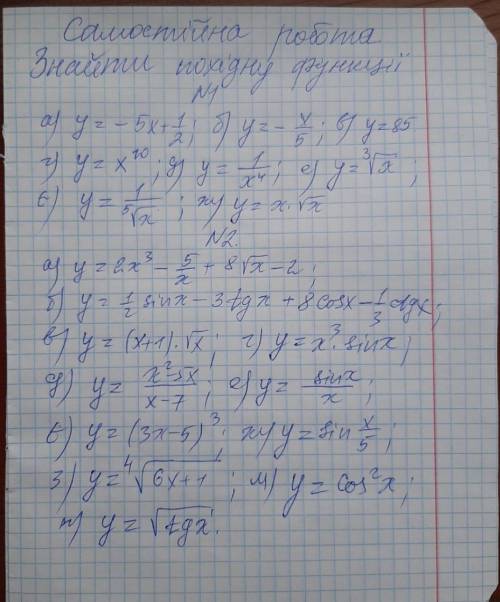 Самостійна робота
Знайти похідну функції
N1
а) y = - 5x + 1/2; б) y = - x/5; в) y = 85
г) y = x^10; д) y = 1/x^4; е) y = ∛x;
є) y = 1/⁵√x; ж) y = x·√x
N2.
а) y = 2x³ - 5/x + 8√x - 2;
б) y = 1/2 sinx - 3tgx + 8cosx - 1/3 ctgx;
в) y = (x+1)·√x; г) y = x³·sinx;
д) y = x²5x/x-7; е) y = sinx/x;
є) y = (3x-5)³; ж) y = sin x/5;
з) y = ⁴√6x+1; и) y = cos²x;
y = √tgx.